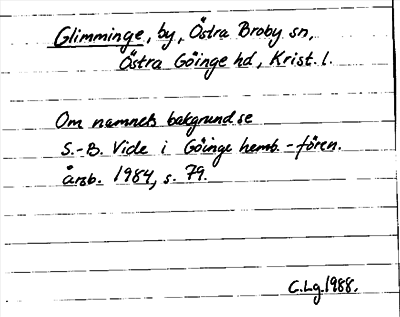 Glimminge, by, Östra Broby sn,
Östra Göinge hd, Krist. l.
Om namnets bakgrund se
S.-B. Vide i Göinge hemb.-fören.
årsb. 1984, s. 79.
C.Lg.1988.